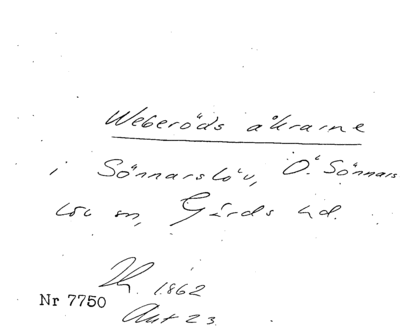 Weberöds åkrarne
i Sönnarslöv, Ö. Sönnars
löv sn, Gärds hd.
Th. 1862
Nr 7750
Akt 23.